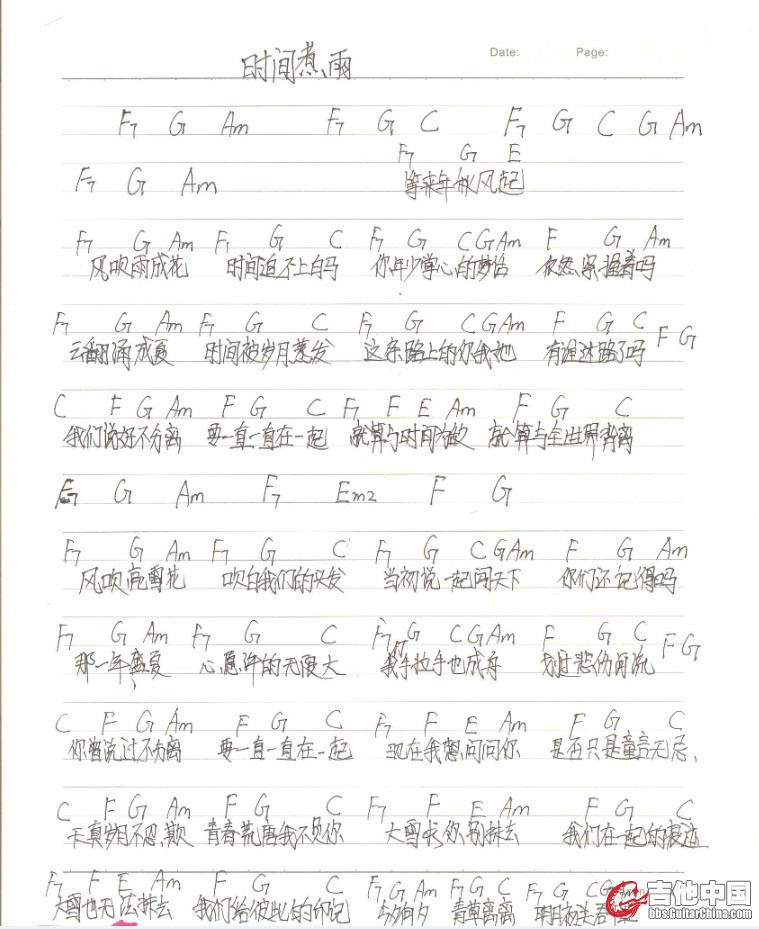 Date: Page:
时间煮雨
F7 G Am F7 G C F7 G C G Am
F7 G E
F7 G Am 等来年秋风起
F7 G Am F7 G C F7 G C G Am F G Am
风吹雨成花 时间追不上白马 你年少掌心的梦话 依然紧握着吗
F7 G Am F7 G C F7 G C G Am F G C F G
云翻涌成夏 时间被岁月蒸发 这条路上的你我她 有谁迷路了吗
C F G Am F G C F7 F E Am F G C
我们说好不分离 要一直一直在一起 就算与时间为敌 就算与全世界背离
F7 G Am F7 Em2 F G
F7 G Am F7 G C F7 G C G Am F G Am
风吹亮雪花 吹白我们的头发 当初说一起闯天下 你们还记得吗
F7 G Am F7 G C F7 G C G Am F G C F G
那一年盛夏 心愿许的无限大 我手拉手也成舟 划过悲伤河流
C F G Am F G C F7 F E Am F G C
你曾说过不分离 要一直一直在一起 现在我想问问你 是否只是童言无忌、
C F G Am F G C F7 F E Am F G C
天真岁月不忍欺 青春荒唐我不负你 大雪求你别抹去 我们在一起的痕迹
F7 F E Am F G C F7 G Am F7 G C F7 G C G Am
大雪也无法抹去 我们给彼此的印记 今夕何夕 青草离离 明月夜送君
吉他中国
bbs.GuitarChina.com